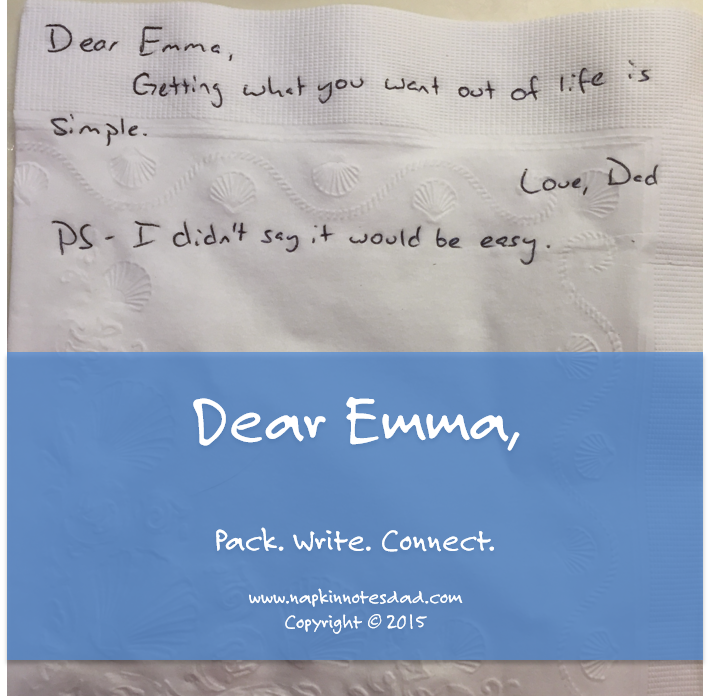 Dear Emma,
Getting what you want out of life is
simple.
Love, Dad
PS - I didn't say it would be easy.
Dear Emma,
Pack. Write. Connect.
www.napkinnotesdad.com
Copyright © 2015